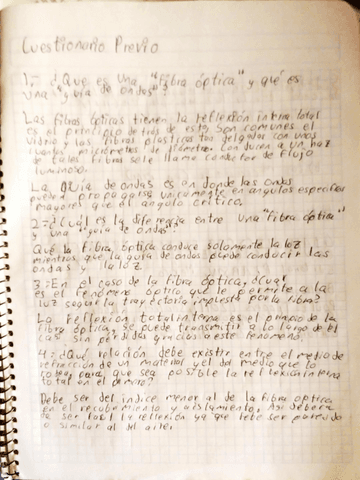 Cuestionario Previo
1.- ¿Que es una "fibra óptica" y qué es
una "guía de ondas"?
Las fibras ópticas tienen la reflexión interna total
es el principio detrás de estas. Son comunes el
vidrio y las fibras plasticas tan delgadas con unos
cuantos micrómetros de diámetro. Conducen a un haz
de tales fibras se le llama conductor de flujo
luminoso.
La guía de ondas es en donde las ondas
pueden propagarse unicamente en angulos especificos
mayores que el angulo critico.
2.- ¿Cuál es la diferencia entre una "fibra óptica"
y una "guía de ondas"?
Que la fibra óptica conduce solamente la luz
mientras que la guía de ondas puede conducir las
ondas y la luz.
3.- En el caso de la fibra óptica, ¿cuál
es el fenómeno óptico que le permite a la
luz seguir la trayectoria impuesta por la fibra?
La reflexión total interna es el principio de la
fibra óptica, se puede transmitir a lo largo de el
las sin pérdidas gracias a este fenómeno.
4.- ¿Qué relación debe existir entre el medio de
refracción de un material y el del medio que lo
rodea para que sea posible la reflexión interna
total en el primero?
Debe ser del indice menor al de la fibra optica
en el recubrimiento y aislamiento, Asi debera
de ser la reflexión ya que debe ser parecido
o similar al del aire.